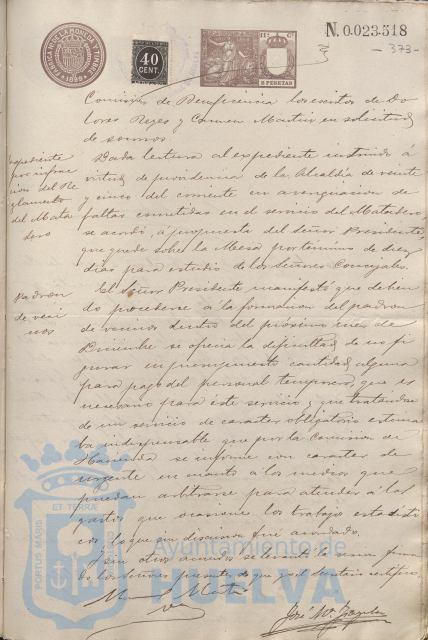 FÁBRICA NL. DE LA MONEDA Y TIMBRE
1898
40
CENT.
11ª Cª
2 PESETAS
N. 0.023.518
- 373 -
Comision de Beneficencia los escritos de Do
lores Reyes y Carmen Martin en solicitud
de socorros
Expediente
por infrac
cion del Re
glamento
del Mata
dero
Dada lectura al expediente instruido á
virtud de providencia de la Alcaldia de veinte
y cinco del corriente en averiguacion de
faltas cometidas en el servicio del Matadero,
se acordó, á propuesta del Señor Presidente,
que quede sobre la Mesa por término de diez
dias para estudio de los Señores Concejales.
Padron
de veci
nos
El Señor Presidente manifestó que debien
do procederse á la formacion del padron
de vecinos dentro del próximo mes de
Diciembre se ofrecia la dificultad de no fi
gurar en presupuesto cantidad alguna
para pago del personal temporero que es
necesario para éste servicio; y que tratandose
de un servicio de caracter obligatorio estima
ba indispensable que por la Comision de
Hacienda se informe con caracter de
urgente en cuanto á los medios que
puedan arbitrarse para atender á los
gastos que ocasione los trabajos estadisti
cos, lo que sin discusion fué acordado.
Sin otros asuntos se levantó la sesion firman
do los Señores presentes de que yo el Secretario certifico,
José Mª
PORTUS MARIS ET TERRÆ
Ayuntamiento de
HUELVA